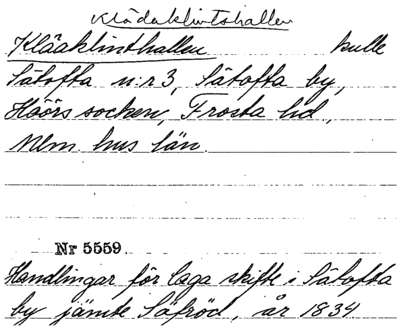 Klådaklintshallen
Klåaklinthallen kulle
Sätofta n:r 3, Sätofta by,
Höörs socken, Frosta hd.,
Mlm hus län.
Nr 5559
Handlingar för laga skifte i Sätofta
by jämte Säfröd, år 1834